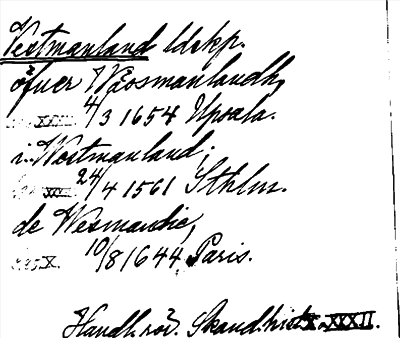 Vestmanland ldskp.
öfuer Wäosmanlandh,
XXXIII. 4/3 1654 Upsala.
i Westmanland,
XVIII. 24/4 1561 Sthlm.
de Wesmanie,
X. 10/8 1644, Paris.
Handl. rör. Skand. hist. X, XXXII.